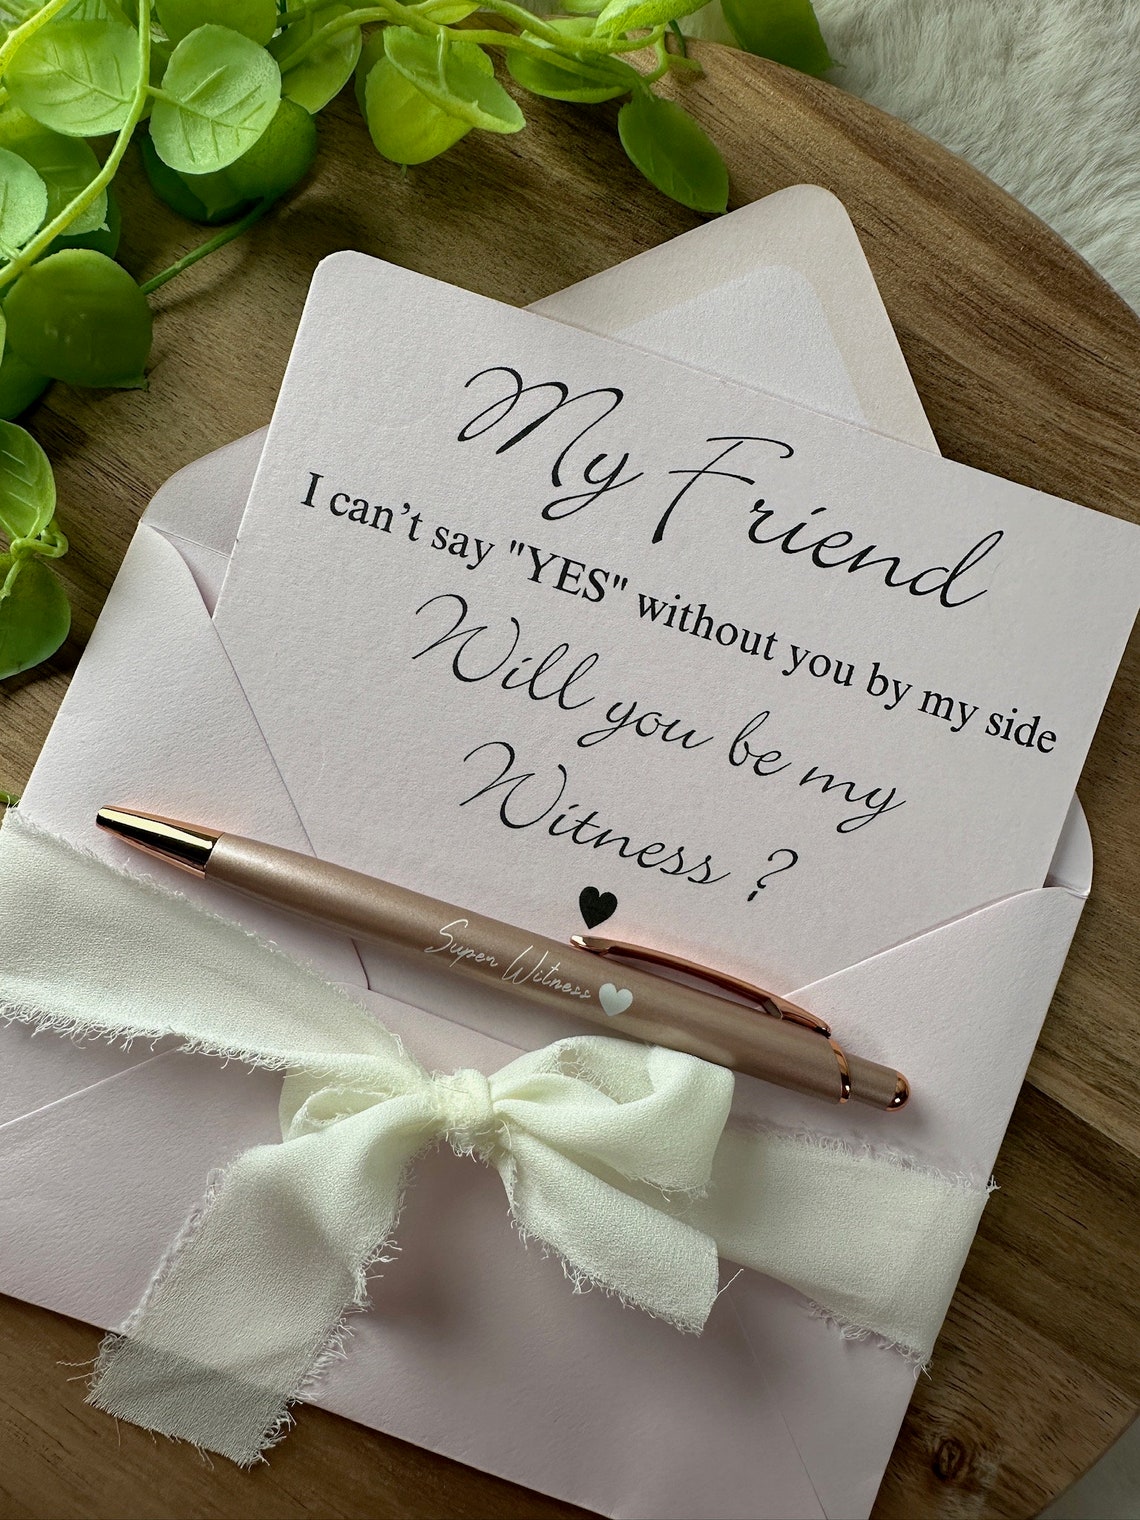 My Friend
I can’t say "YES" without you by my side
Will you be my
Witness ?
Super Witness